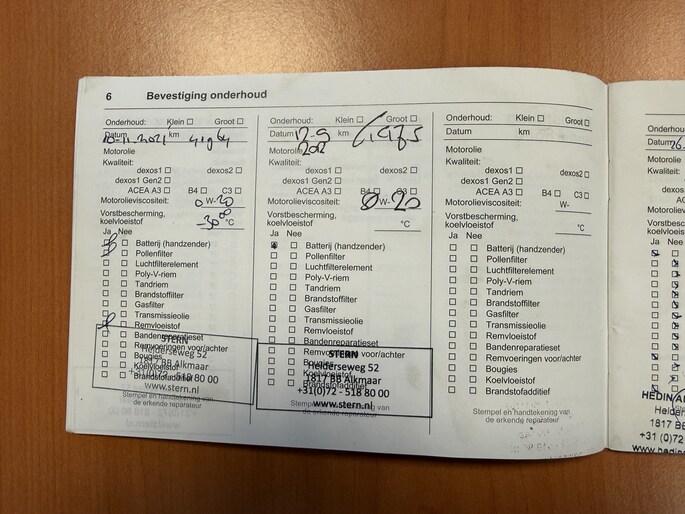 6 Bevestiging onderhoud
Onderhoud: Klein Groot
Datum 10-11-2021 km
Motorolie
Kwaliteit:
dexos1 dexos2
dexos1 Gen2
ACEA A3 B4 C3
Motorolieviscositeit: 0 W-20
Vorstbescherming,
koelvloeistof -30 °C
Ja Nee
Batterij (handzender)
Pollenfilter
Luchtfilterelement
Poly-V-riem
Tandriem
Brandstoffilter
Gasfilter
Transmissieolie
Remvloeistof
Bandenreparatieset
Remvoeringen voor/achter
Bougies
Koelvloeistof
Brandstofadditief
STERN
Helderseweg 52
1817 BB Alkmaar
+31(0)72 - 518 80 00
www.stern.nl
Onderhoud: Klein Groot
Datum 12-9 km
Motorolie
Kwaliteit:
dexos1 dexos2
dexos1 Gen2
ACEA A3 B4 C3
Motorolieviscositeit: 0 W-20
Vorstbescherming,
koelvloeistof °C
Ja Nee
Batterij (handzender)
Pollenfilter
Luchtfilterelement
Poly-V-riem
Tandriem
Brandstoffilter
Gasfilter
Transmissieolie
Remvloeistof
Bandenreparatieset
Remvoeringen voor/achter
Bougies
Koelvloeistof
Brandstofadditief
STERN
Helderseweg 52
1817 BB Alkmaar
+31(0)72 - 518 80 00
www.stern.nl
Stempel en handtekening van
de erkende reparateur
Onderhoud: Klein Groot
Datum km
Motorolie
Kwaliteit:
dexos1 dexos2
dexos1 Gen2
ACEA A3 B4 C3
Motorolieviscositeit: W-
Vorstbescherming,
koelvloeistof °C
Ja Nee
Batterij (handzender)
Pollenfilter
Luchtfilterelement
Poly-V-riem
Tandriem
Brandstoffilter
Gasfilter
Transmissieolie
Remvloeistof
Bandenreparatieset
Remvoeringen voor/achter
Bougies
Koelvloeistof
Brandstofadditief
Stempel en handtekening van
de erkende reparateur
Datum
Motorolie
Kwaliteit:
Ja Nee
1817 B
+31 (0)72